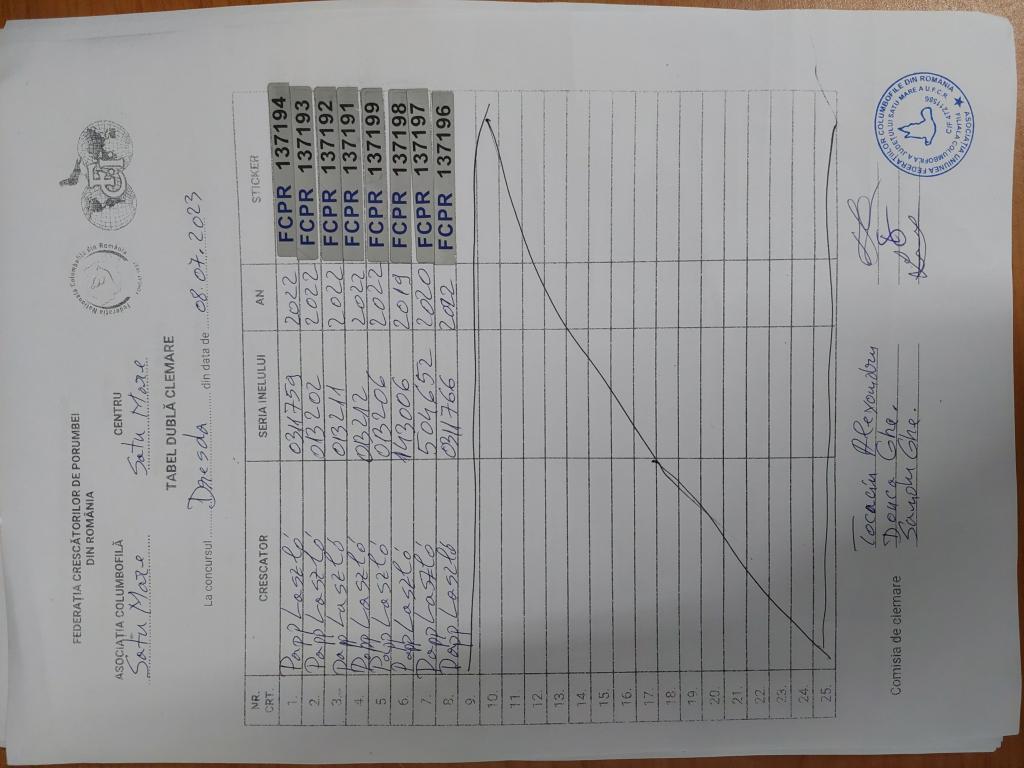 FEDERAȚIA CRESCĂTORILOR DE PORUMBEI
DIN ROMÂNIA
ASOCIAȚIA COLUMBOFILĂ CENTRU
Satu Mare Satu Mare
TABEL DUBLĂ CLEMARE
La concursul Dresda din data de 08.07.2023
NR. CRT. CRESCATOR SERIA INELULUI AN STICKER
1. Papp Laszló 0311759 2022 FCPR 137194
2. Papp Laszló 013202 2022 FCPR 137193
3. Papp Laszló 013211 2022 FCPR 137192
4. Papp Laszló 013212 2022 FCPR 137191
5 Papp Laszló 013206 2022 FCPR 137199
6. Papp Laszlo 143006 2019 FCPR 137198
7. Papp Laszló 504652 2020 FCPR 137197
8. Papp Laszló 0311766 2022 FCPR 137196
9.
10.
11.
12.
13.
14.
15.
16.
17.
18.
19.
20.
21.
22.
23.
24.
25.
Comisia de clemare
Tocaciu Alexandru
Donca Ghe.
Ghe.
ASOCIAȚIA UNIUNEA FEDERAȚIILOR COLUMBOFILE DIN ROMANIA
FILIALA COLUMBOFILA A JUDEȚULUI SATU MARE A U.F.C.R.
CIF:47311586